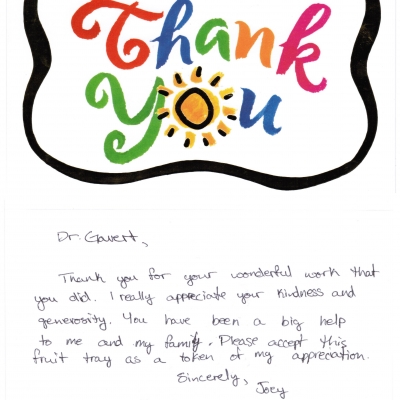 Thank
You
Dr. Gavert,
Thank you for your wonderful work that
you did. I really appreciate your kindness and
generosity. You have been a big help
to me and my family. Please accept this
fruit tray as a token of my appreciation.
Sincerely,
Joey